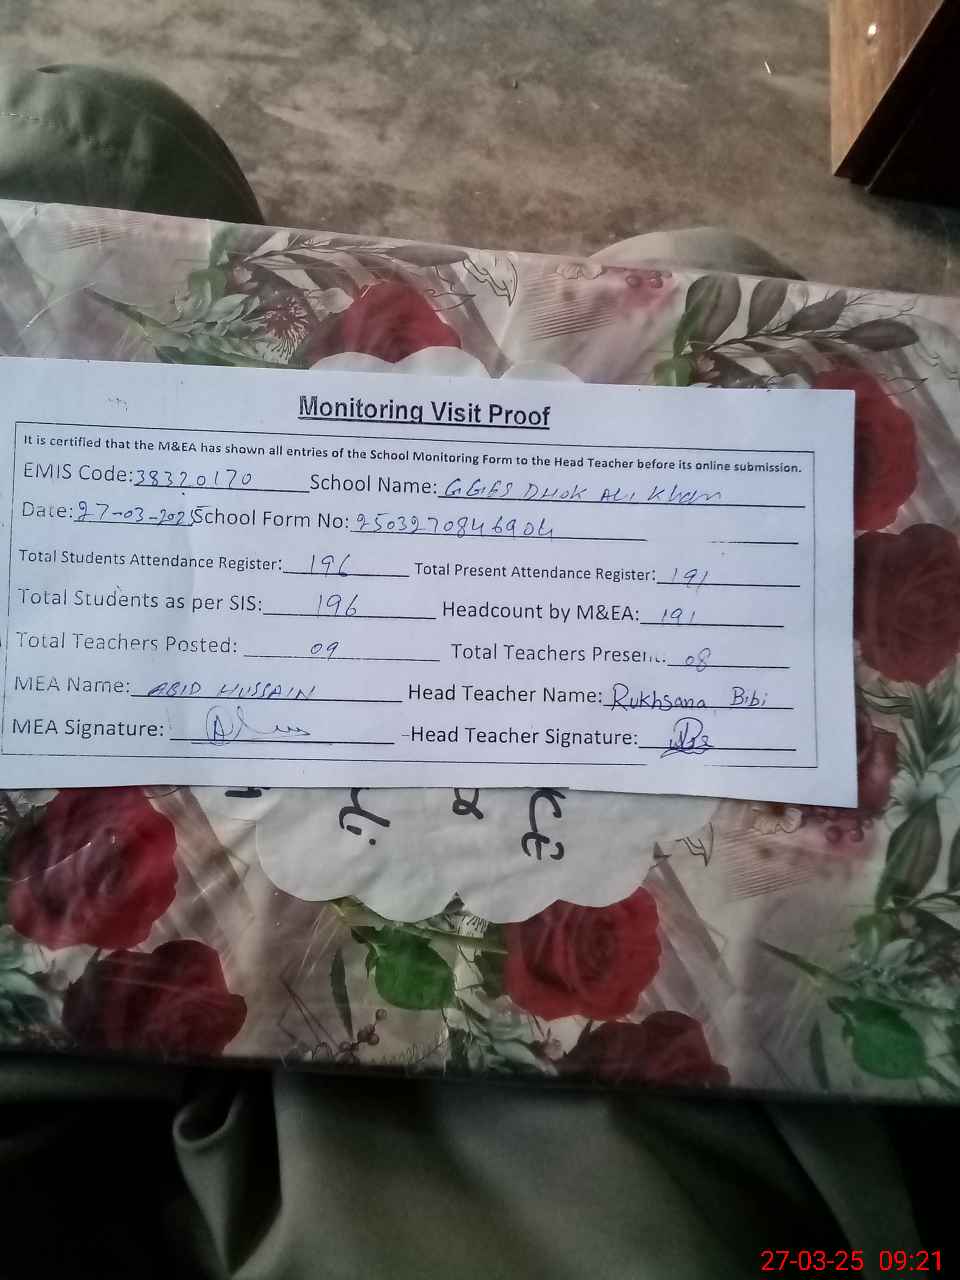 Monitoring Visit Proof
It is certified that the M&EA has shown all entries of the School Monitoring Form to the Head Teacher before its online submission.
EMIS Code: 38320170 School Name: GGES DHOK ALI Khan
Date: 27-03-2025 School Form No: 2503270846904
Total Students Attendance Register: 196 Total Present Attendance Register: 191
Total Students as per SIS: 196 Headcount by M&EA: 191
Total Teachers Posted: 09 Total Teachers Present: 08
MEA Name: ABID HUSSAIN Head Teacher Name: Rukhsana Bibi
MEA Signature: Head Teacher Signature:
27-03-25 09:21